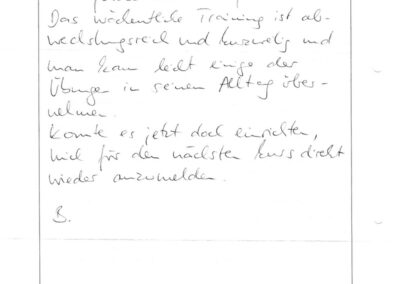 Das wöchentliche Training ist ab-
wechslungsreich und kurzweilig und
man kann leicht einige der
Übungen in seinen Alltag über-
nehmen.
Konnte es jetzt doch einrichten,
mich für den nächsten Kurs direkt
wieder anzumelden.
B.